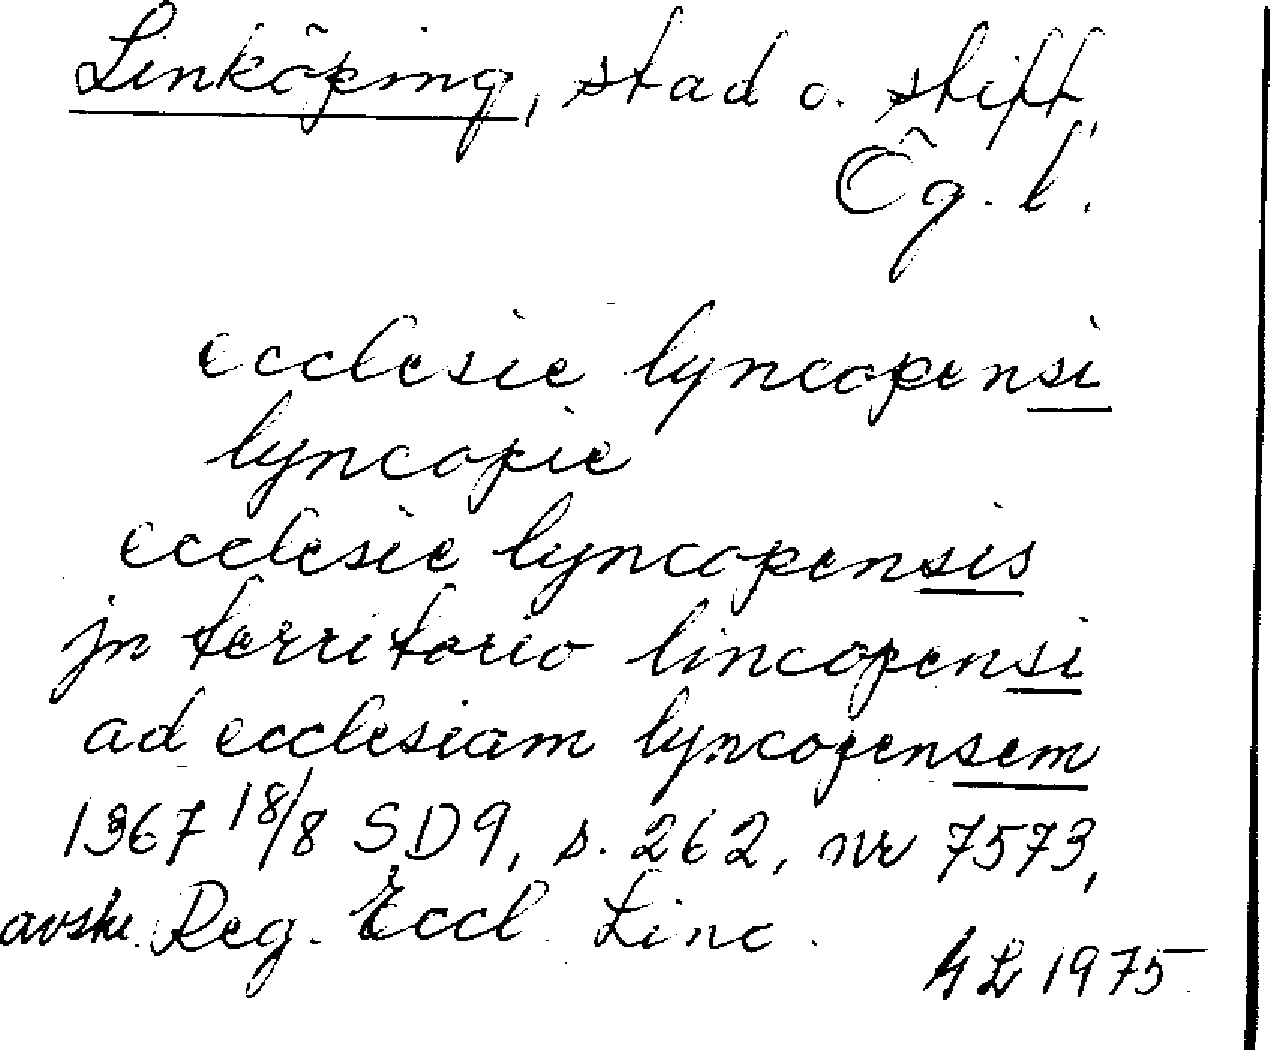 Linköping, stad o. stift,
Ög. l.
ecclesie lyncopensi
lyncopie
ecclesie lyncopensis
jn territorio lincopensi
ad ecclesiam lyncopensem
1367 18/8 SD9, s. 262, nr 7573,
avskr. Reg. Eccl. Linc.
GL 1975